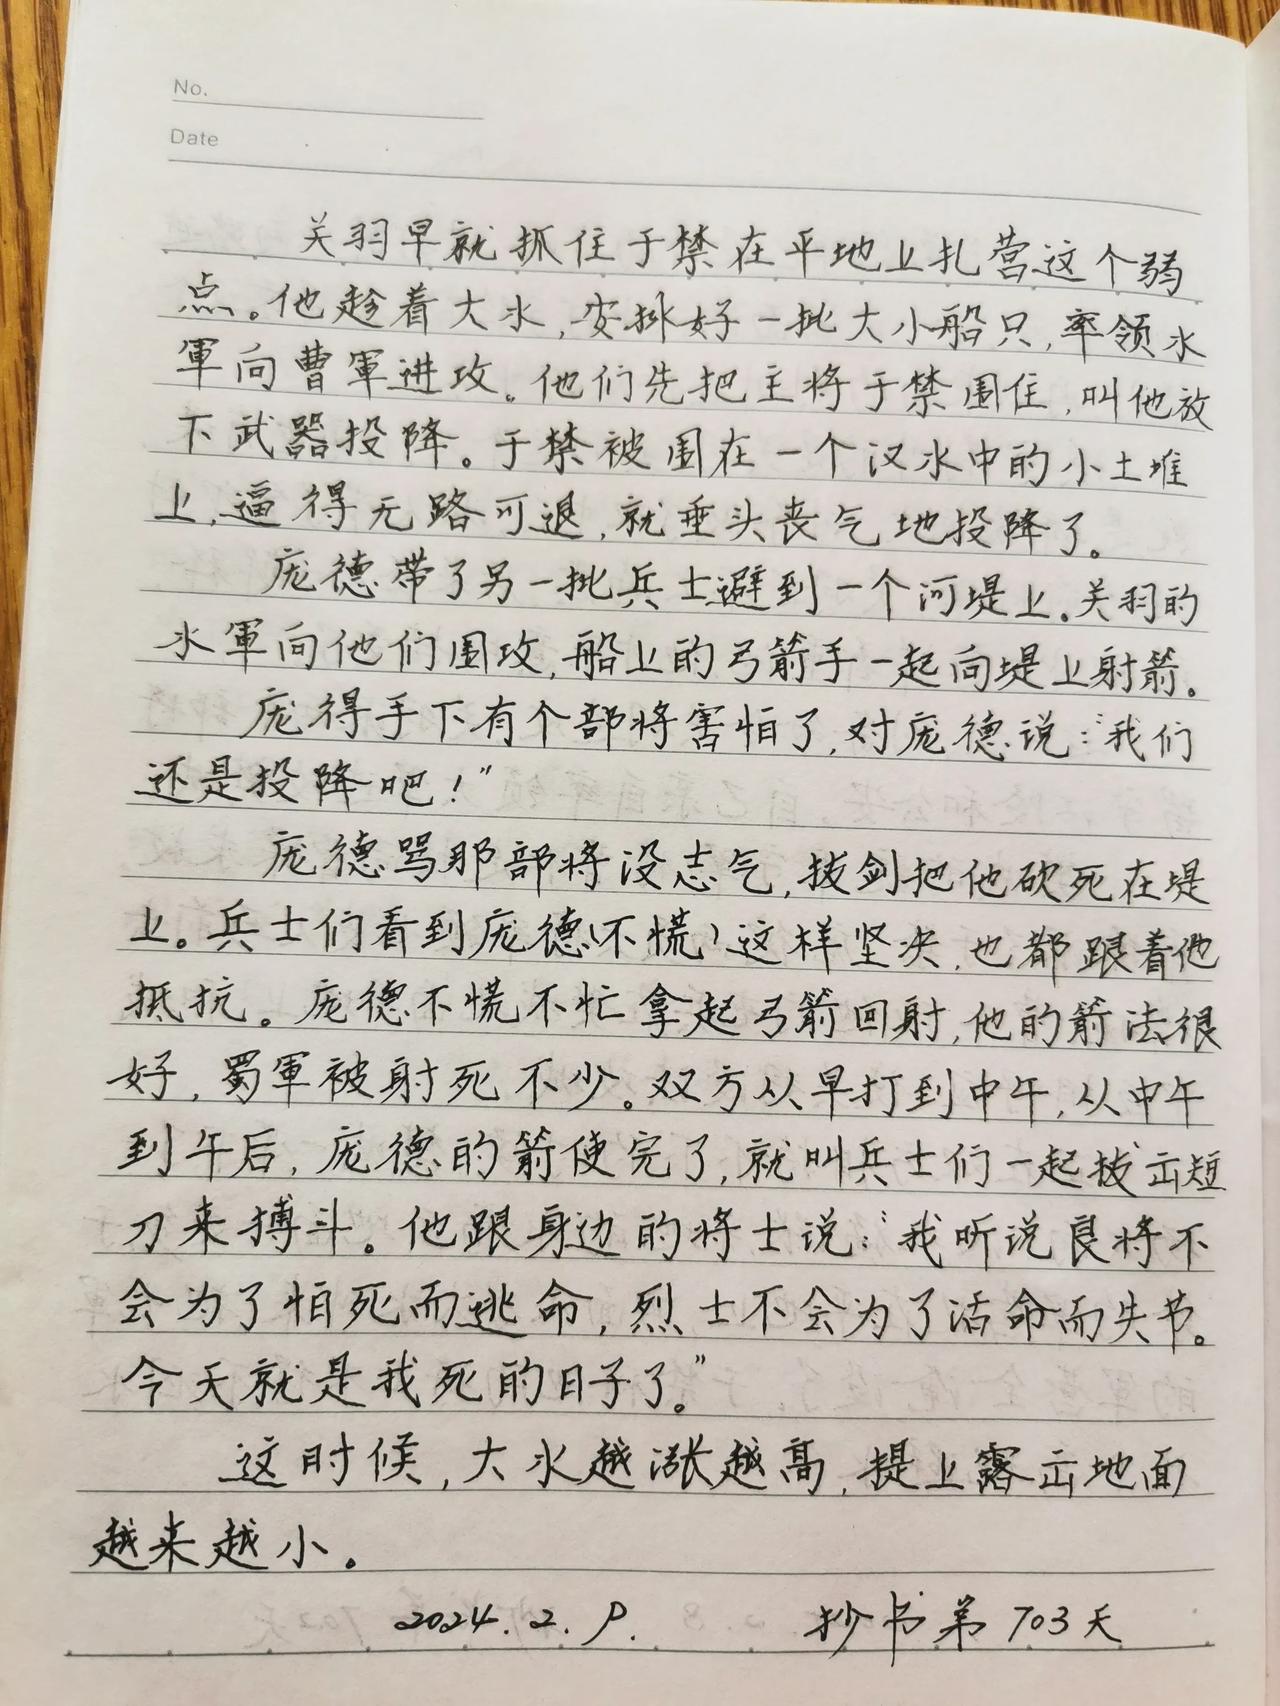 No.
Date
关羽早就抓住于禁在平地上扎营这个弱
点。他趁着大水,安排好一批大小船只,率领水
軍向曹軍进攻。他们先把主将于禁围住,叫他放
下武器投降。于禁被围在一个汉水中的小土堆
上,逼得无路可退,就垂头丧气地投降了。
庞德带了另一批兵士避到一个河堤上。关羽的
水軍向他们围攻,船上的弓箭手一起向堤上射箭。
庞得手下有个部将害怕了,对庞德说:“我们
还是投降吧!”
庞德骂那部将没志气,拔剑把他砍死在堤
上。兵士们看到庞德(不慌)这样坚决,也都跟着他
抵抗。庞德不慌不忙拿起弓箭回射,他的箭法很
好,蜀軍被射死不少。双方从早打到中午,从中午
到午后,庞德的箭使完了,就叫兵士们一起拔出短
刀来搏斗。他跟身边的将士说:“我听说良将不
会为了怕死而逃命,烈士不会为了活命而失节。
今天就是我死的日子了。”
这时候,大水越涨越高,提上露出地面
越来越小。
2024.2.9. 抄书第703天